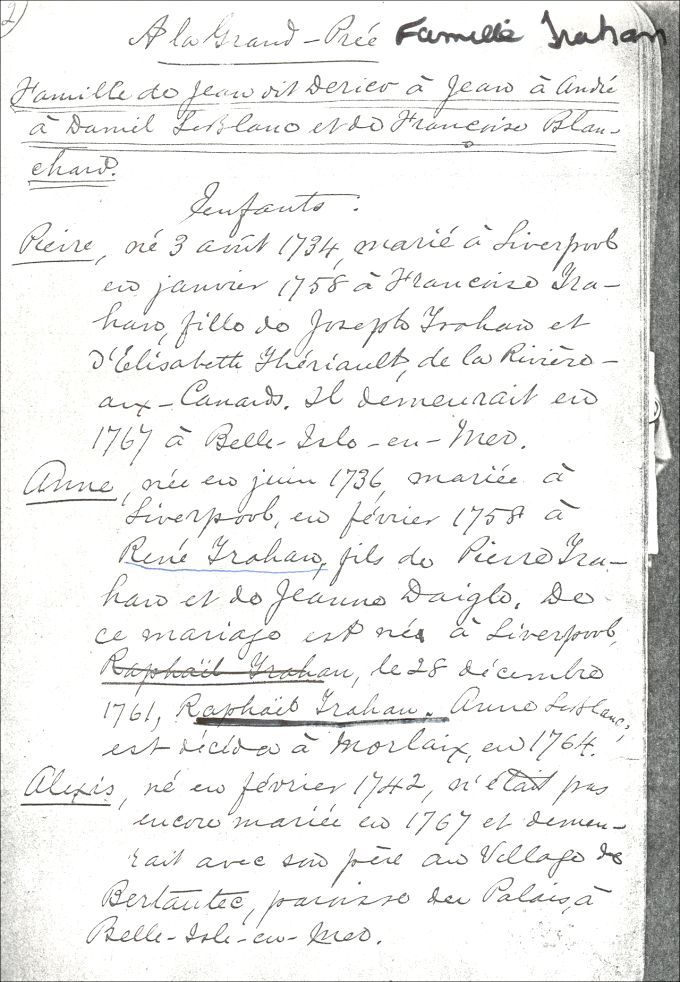 2)
A la Grand-Prée Famille Trahan
Famille de Jean dit Derico à Jean à André
à Daniel LeBlanc et de Françoise Blan-
chard.
Enfants :
Pierre, né 3 août 1734, marié à Liverpool
en janvier 1758 à Françoise Tra-
han, fille de Joseph Trahan et
d'Elisabeth Thériault, de la Rivière-
aux-Canards. Il demeurait en
1767 à Belle-Isle-en-Mer.
Anne, née en juin 1736, mariée à
Liverpool, en février 1758 à
René Trahan, fils de Pierre Tra-
han et de Jeanne Daigle. De
ce mariage est né à Liverpool,
Raphaël Trahan, le 28 décembre
1761, Raphaël Trahan. Anne LeBlanc,
est décédée à Morlaix, en 1764.
Alexis, né en février 1742, n'était pas
encore mariée en 1767 et demeu-
rait avec son père au Village de
Bertantec, paroisse du Palais, à
Belle-Isle-en-Mer.